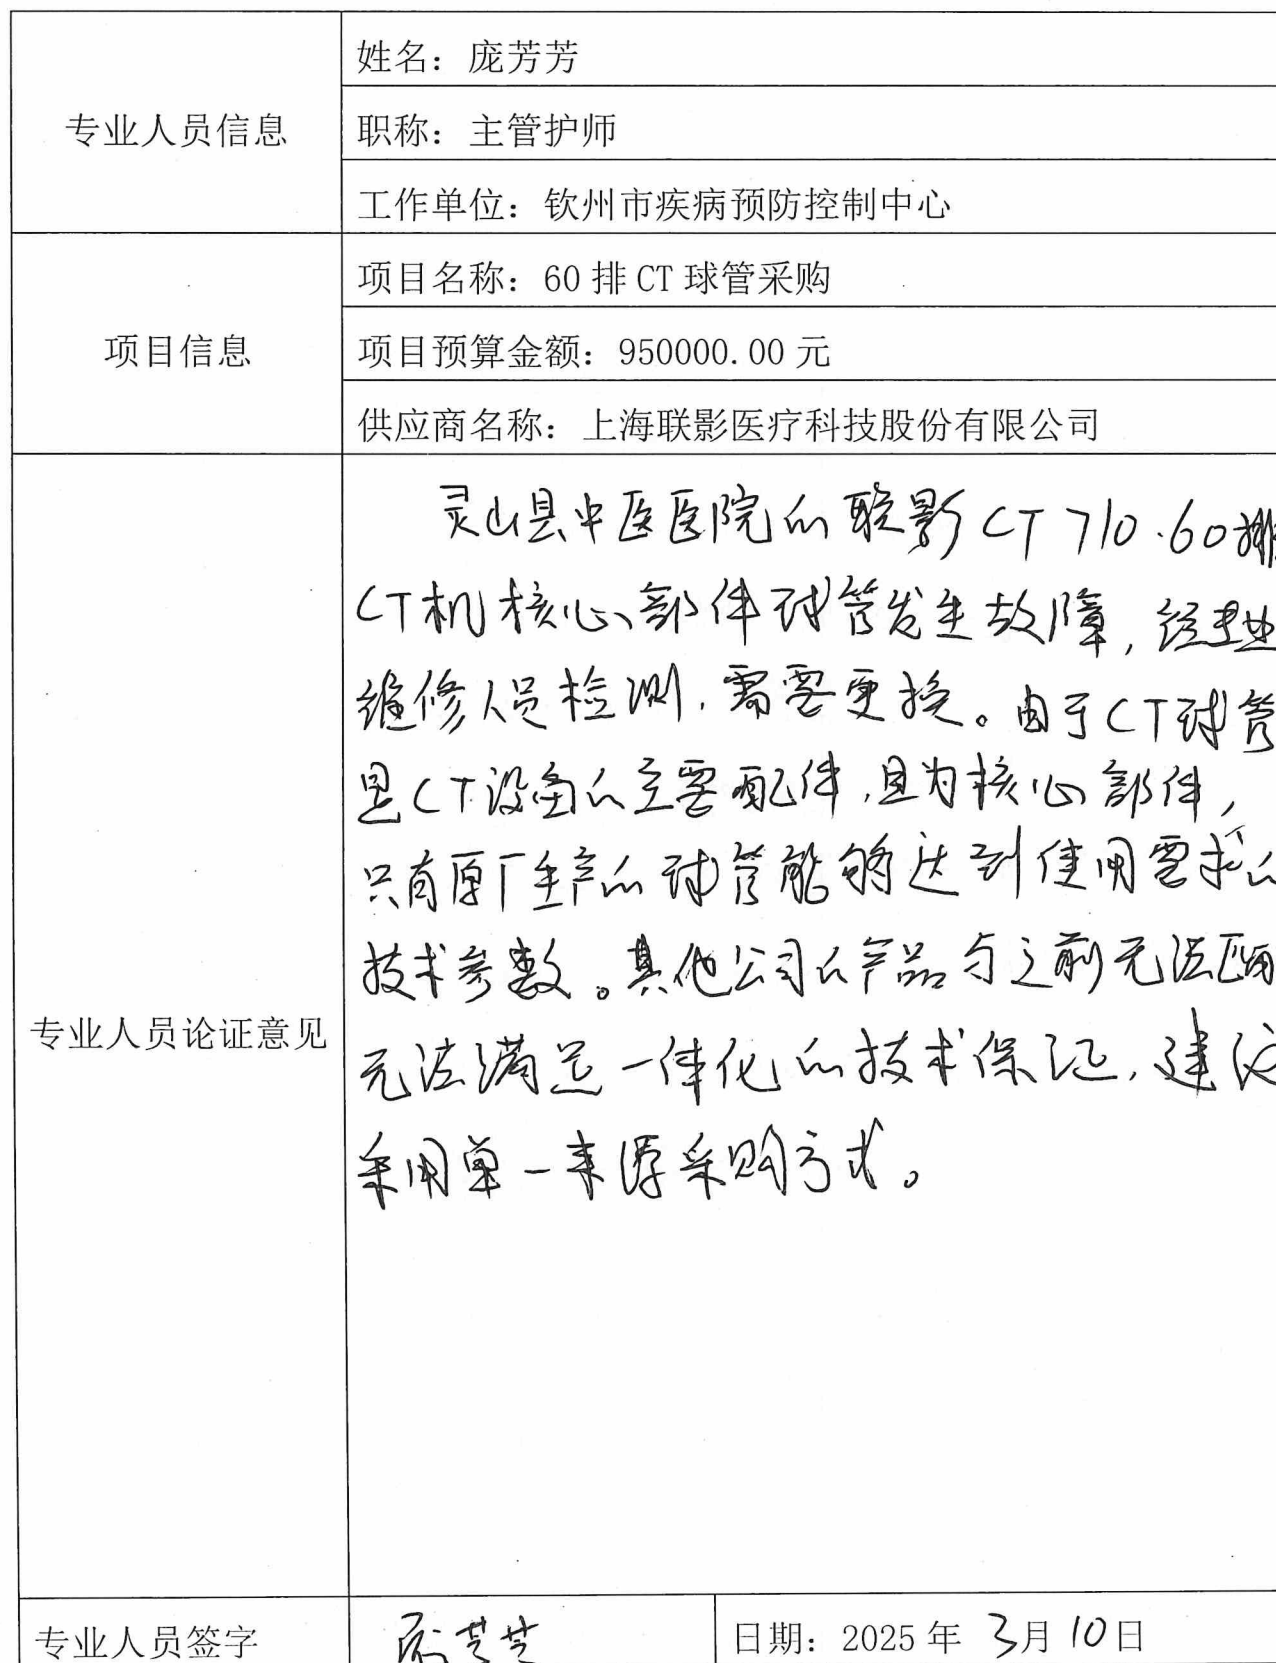 姓名：庞芳芳
专业人员信息
职称：主管护师
工作单位：钦州市疾病预防控制中心
项目名称：60排CT球管采购
项目信息
项目预算金额：950000.00元
供应商名称：上海联影医疗科技股份有限公司
灵山县中医医院的联影CT 710.60排
CT机核心部件球管发生故障，经专业
维修人员检测，需要更换。由于CT球管
是CT设备的主要配件，且为核心部件，
只有原厂生产的球管能够达到使用需求的
技术参数。其他公司的产品与之前无法匹配
无法满足一体化的技术保证，建议
采用单一来源采购方式。
专业人员论证意见
专业人员签字
庞芳芳
日期：2025年3月10日